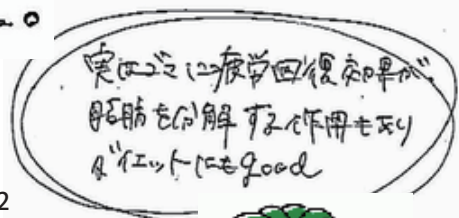 実はゴマに疲労回復効果が、
脂肪を分解する作用もあり
ダイエットにもgood
2